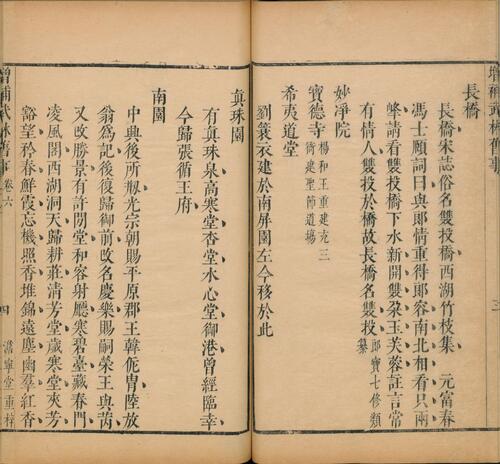 長橋
長橋宋誌俗名雙投橋西湖竹枝集 元富春
馮士頤詞曰與郎情重得郎容南北相看只兩
峰請看雙投橋下水新開雙朶玉芙蓉註言常
有情人雙投於橋故長橋名雙投郎寶七修類
纂
妙淨院
寶德寺楊和王重建充三
衙建聖節道場
希夷道堂
劉蓑衣建於南屏園左今移於此
真珠園
有真珠泉高寒堂杏堂水心堂御港曾經臨幸
今歸張循王府
南園
中興後所剏光宗朝賜平原郡王韓侂胄陸放
翁爲記後復歸御前改名慶樂賜嗣榮王與芮
又改勝景有許閒堂和容射廳寒碧臺藏春門
凌風閣西湖洞天歸耕莊清芬堂歲寒堂夾芳
豁望矜春鮮霞忘機照香堆錦遠塵幽翠紅香
增補武林舊事 卷六 四